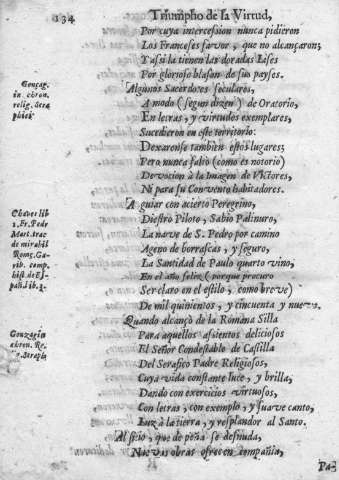 134 Triumpho de la Virtud,
Por cuya intercession nunca pidieron
Los Franceses favor, que no alcançaron;
Y assi la tienen las doradas Lises
Por glorioso blason de sus payses.
Algunos Sacerdotes seculares,
A modo (segun dizen) de Oratorio,
En letras, y virtudes exemplares,
Sucedieron en este territorio:
Dexaronse tambien estos lugares;
Pero nunca faltò (como es notorio)
Devocion à la Imagen de Victores,
Ni para su Convento habitadores.
A guiar con acierto Peregrino,
Diestro Piloto, Sabio Palinuro,
La nave de S. Pedro por camino
Ageno de borrascas, y seguro,
La Santidad de Paulo quarto vino,
En el año feliz (porque procuro
Ser claro en el estilo, como breve)
De mil quinientos, y cincuenta y nueve.
Quando alcançò de la Romana Silla
Para aquellos assientos deliciosos
El Señor Condestable de Castilla
Del Serafico Padre Religiosos,
Cuya vida constante luce, y brilla,
Dando con exercicios virtuosos,
Con letras, con exemplo, y suave canto,
Luz à la tierra, y resplandor al Santo.
Al sitio, que de peña se desnuda,
Nuevas obras ofrecen compañia,
Pa-
Gonçag.
in chron.
relig. Sera
phicæ
Chaves lib
1. Fr. Pedr
Mart. trac
de mirabil
Romæ. Ga-
rib. comp.
hist. de Es-
pañ. lib.
Gonzaga in
chron. Re-
lig. Seraph